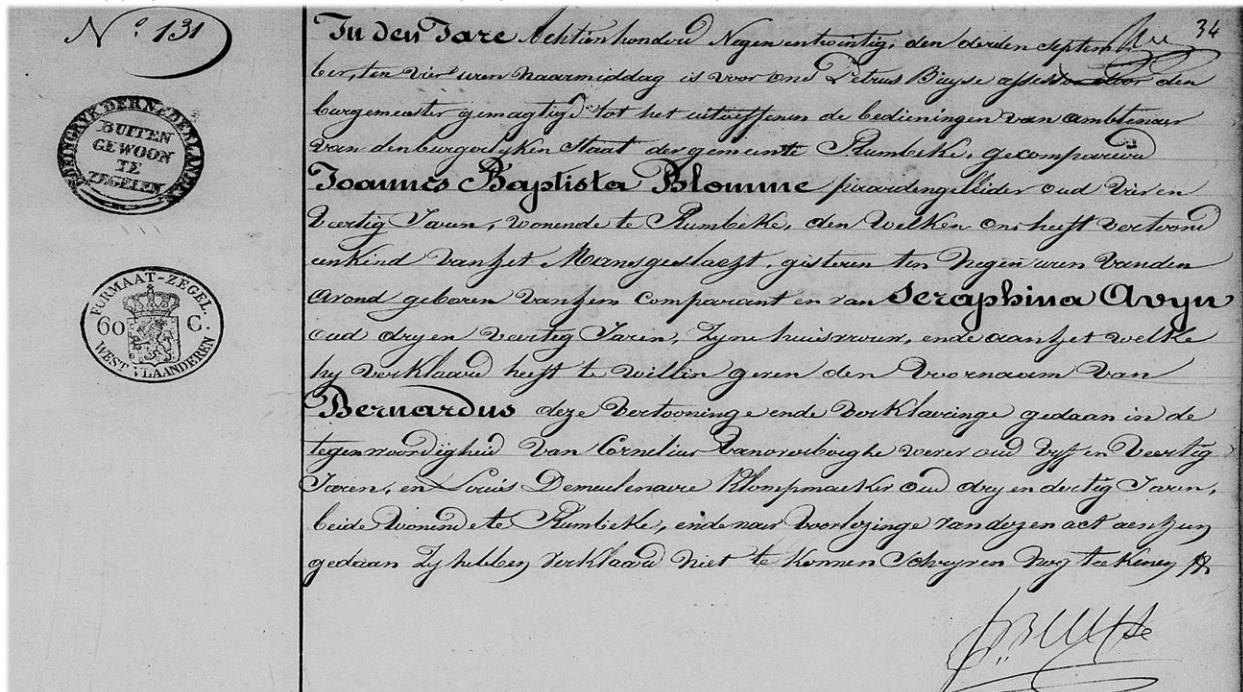 N.º 131
34
In den Jare Achtien honderd Negen entwintig, den derden septem
ber, ten vier uren naarmiddag is voor ons Petrus Buyse door den
burgemeester gemagtigd tot het uitoeffenen de bedieningen van ambtenaar
van den burgerlyken Staat der gemeente Rumbeke, gecompareerd
Joannes Baptista Blomme paardengeleider oud vier en
veertig Jaren, wonende te Rumbeke, den welken ons heeft vertoond
een kind van het Mansgeslacht, gisteren ten negen uren vanden
avond geboren van hem comparant en van Seraphina Avyn
oud dry en veertig Jaren, zyne huisvrouw, ende aan het welke
hy verklaard heeft te willen geven den voornaam van
Bernardus deze vertooninge ende verklaringe gedaan in de
tegenwoordigheid van Cornelius wever oud vyf en veertig
Jaren, en Louis Demeulenaere klompmaeker oud dry en dertig Jaren,
beide wonende te Rumbeke, ende naer voorlezinge van dezen act aen hun
gedaan zy hebben verklaard niet te konnen schryven nog teekenen
P. Buyse
KONINGRYK DER NEDERLANDEN
BUITEN
GEWOON
TE
ZEGELEN
FORMAAT-ZEGEL
60 C.
WEST VLAANDEREN